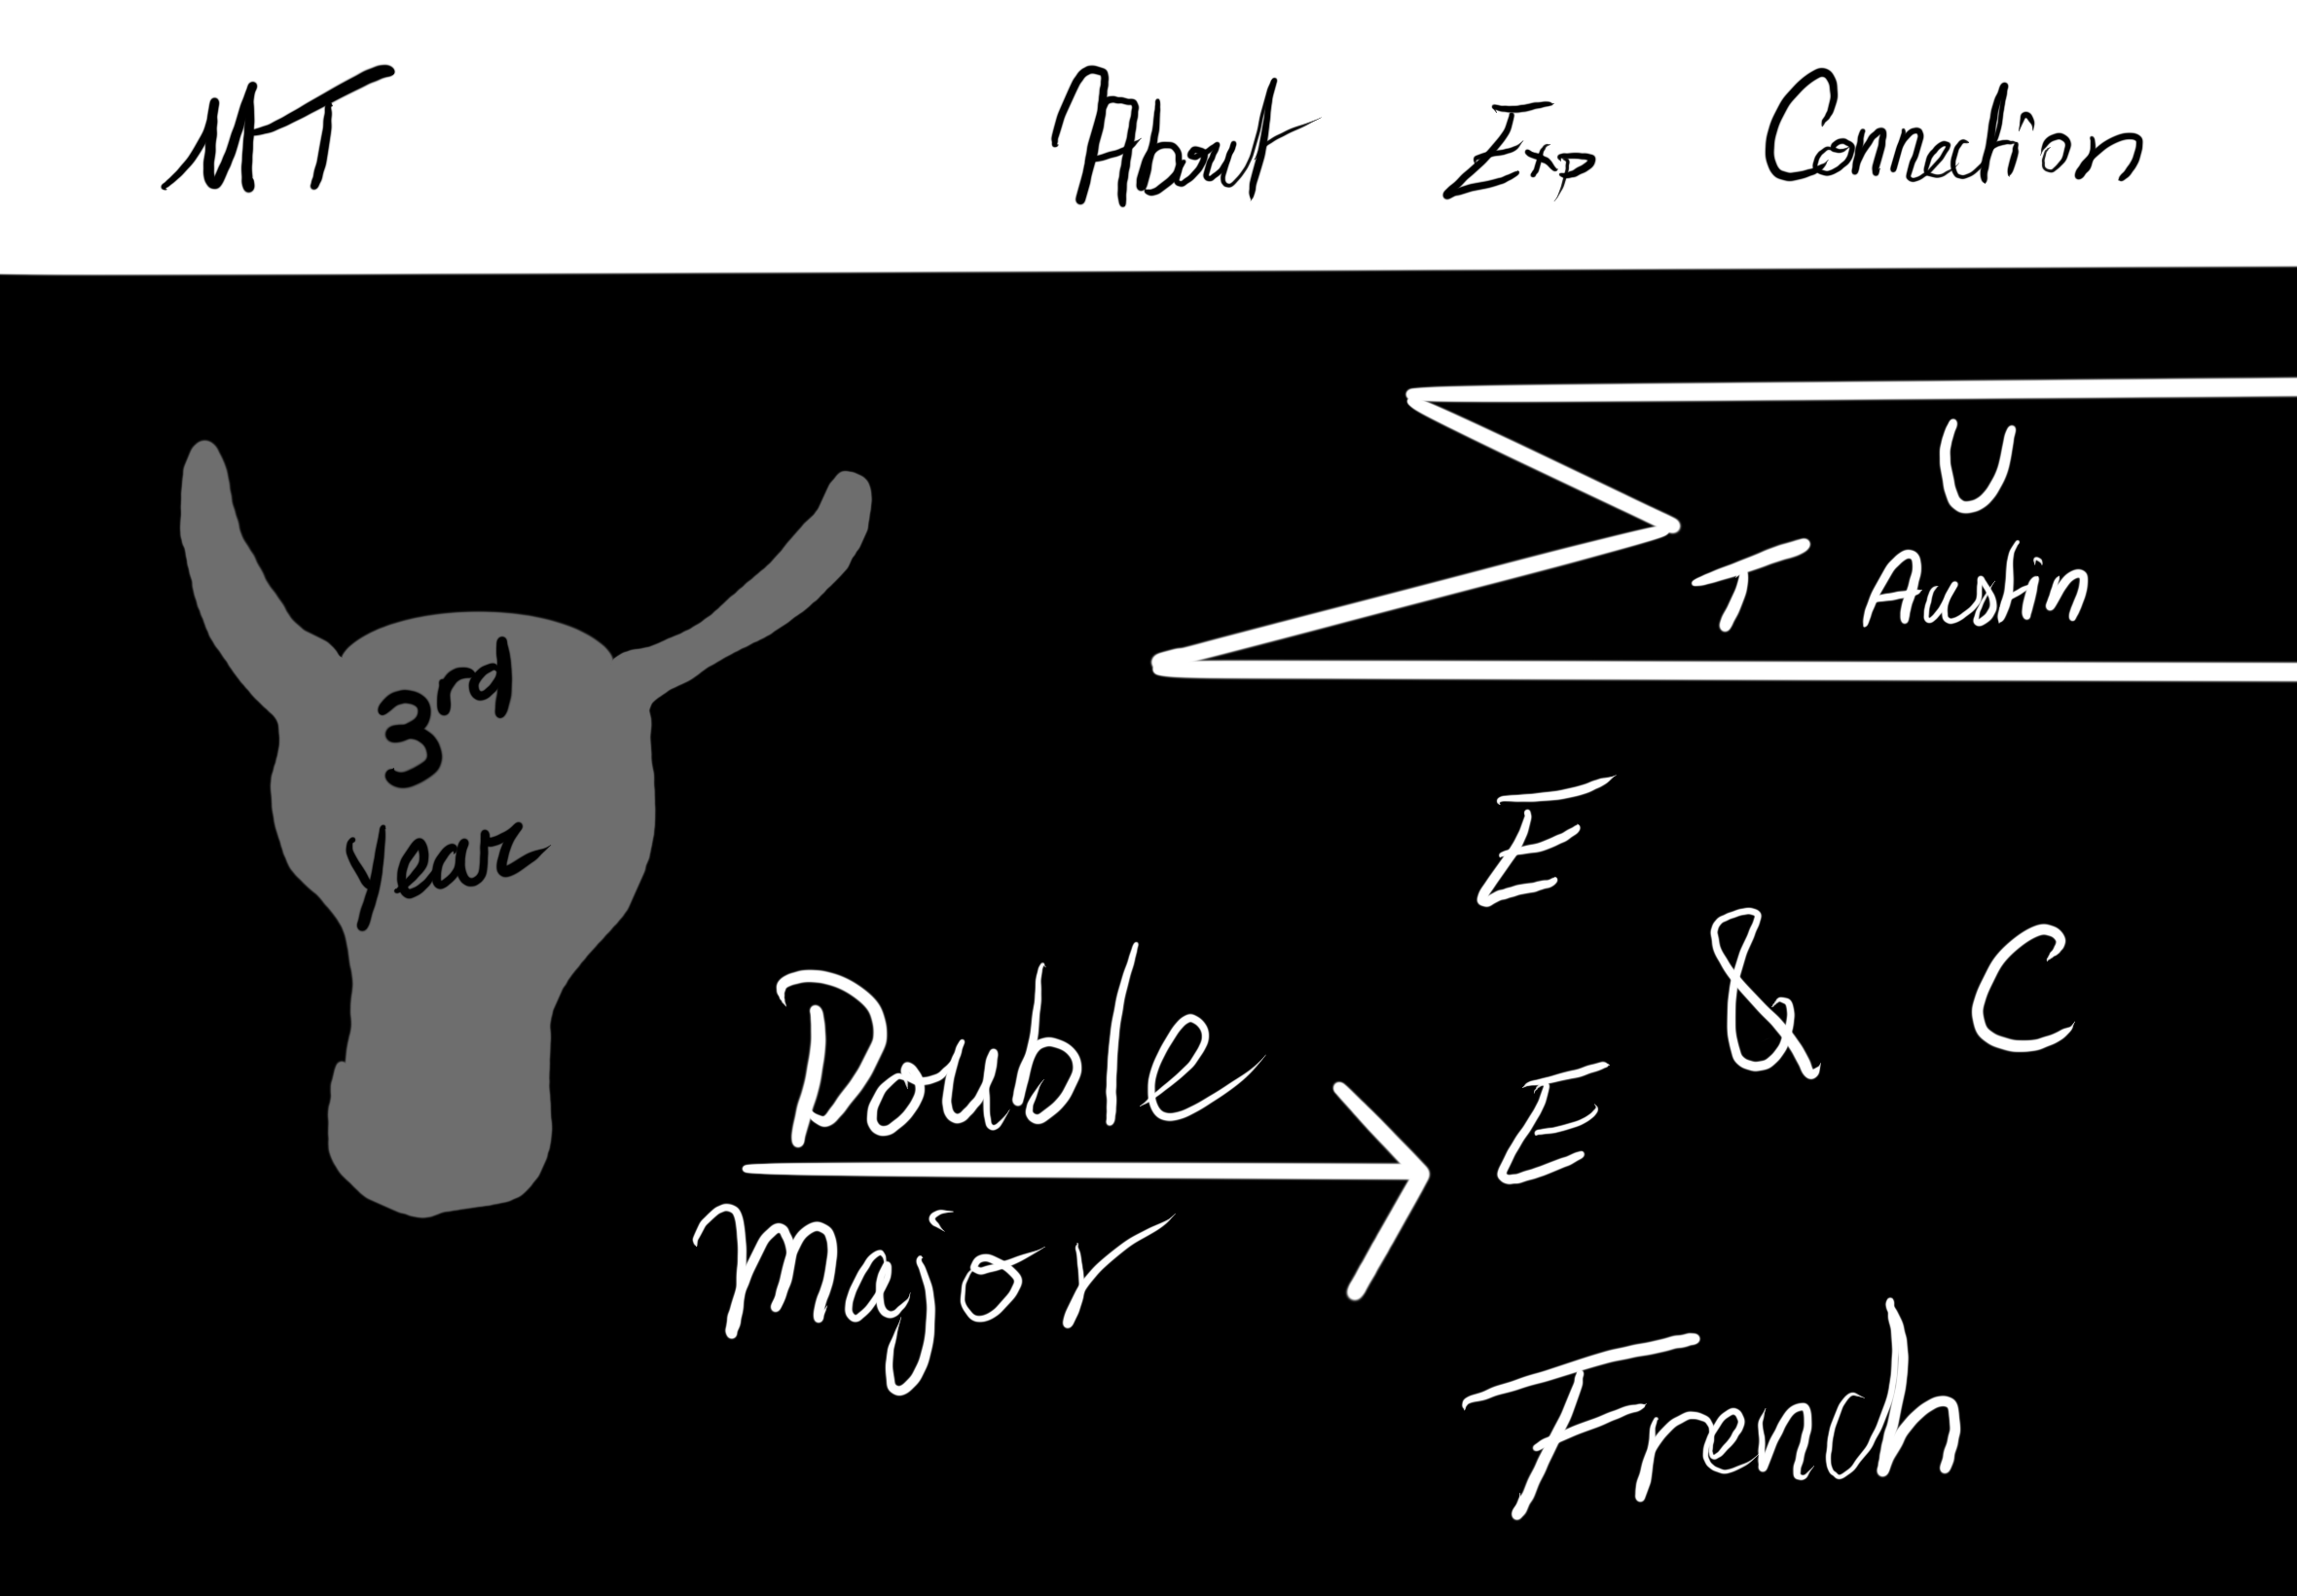 MT About Exp Connection
U
T Austin
3rd
year
E
& C
Double
E
Major
French